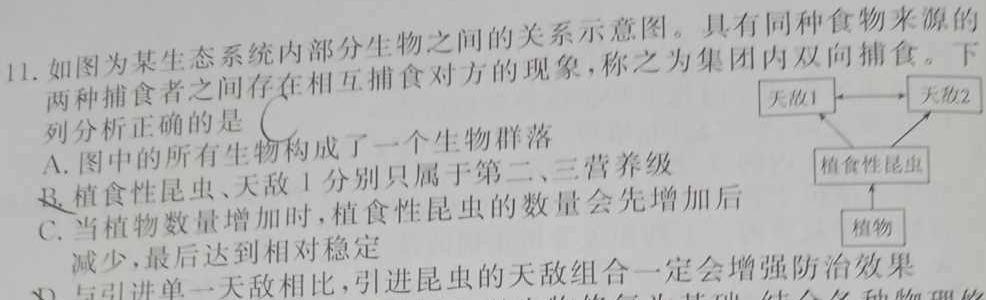 11. 如图为某生态系统内部分生物之间的关系示意图。具有同种食物来源的
两种捕食者之间存在相互捕食对方的现象,称之为集团内双向捕食。下
列分析正确的是
天敌1
天敌2
植食性昆虫
植物
A. 图中的所有生物构成了一个生物群落
B. 植食性昆虫、天敌1分别只属于第二、三营养级
C. 当植物数量增加时,植食性昆虫的数量会先增加后
减少,最后达到相对稳定
D. 与引进单一天敌相比,引进昆虫的天敌组合一定会增强防治效果